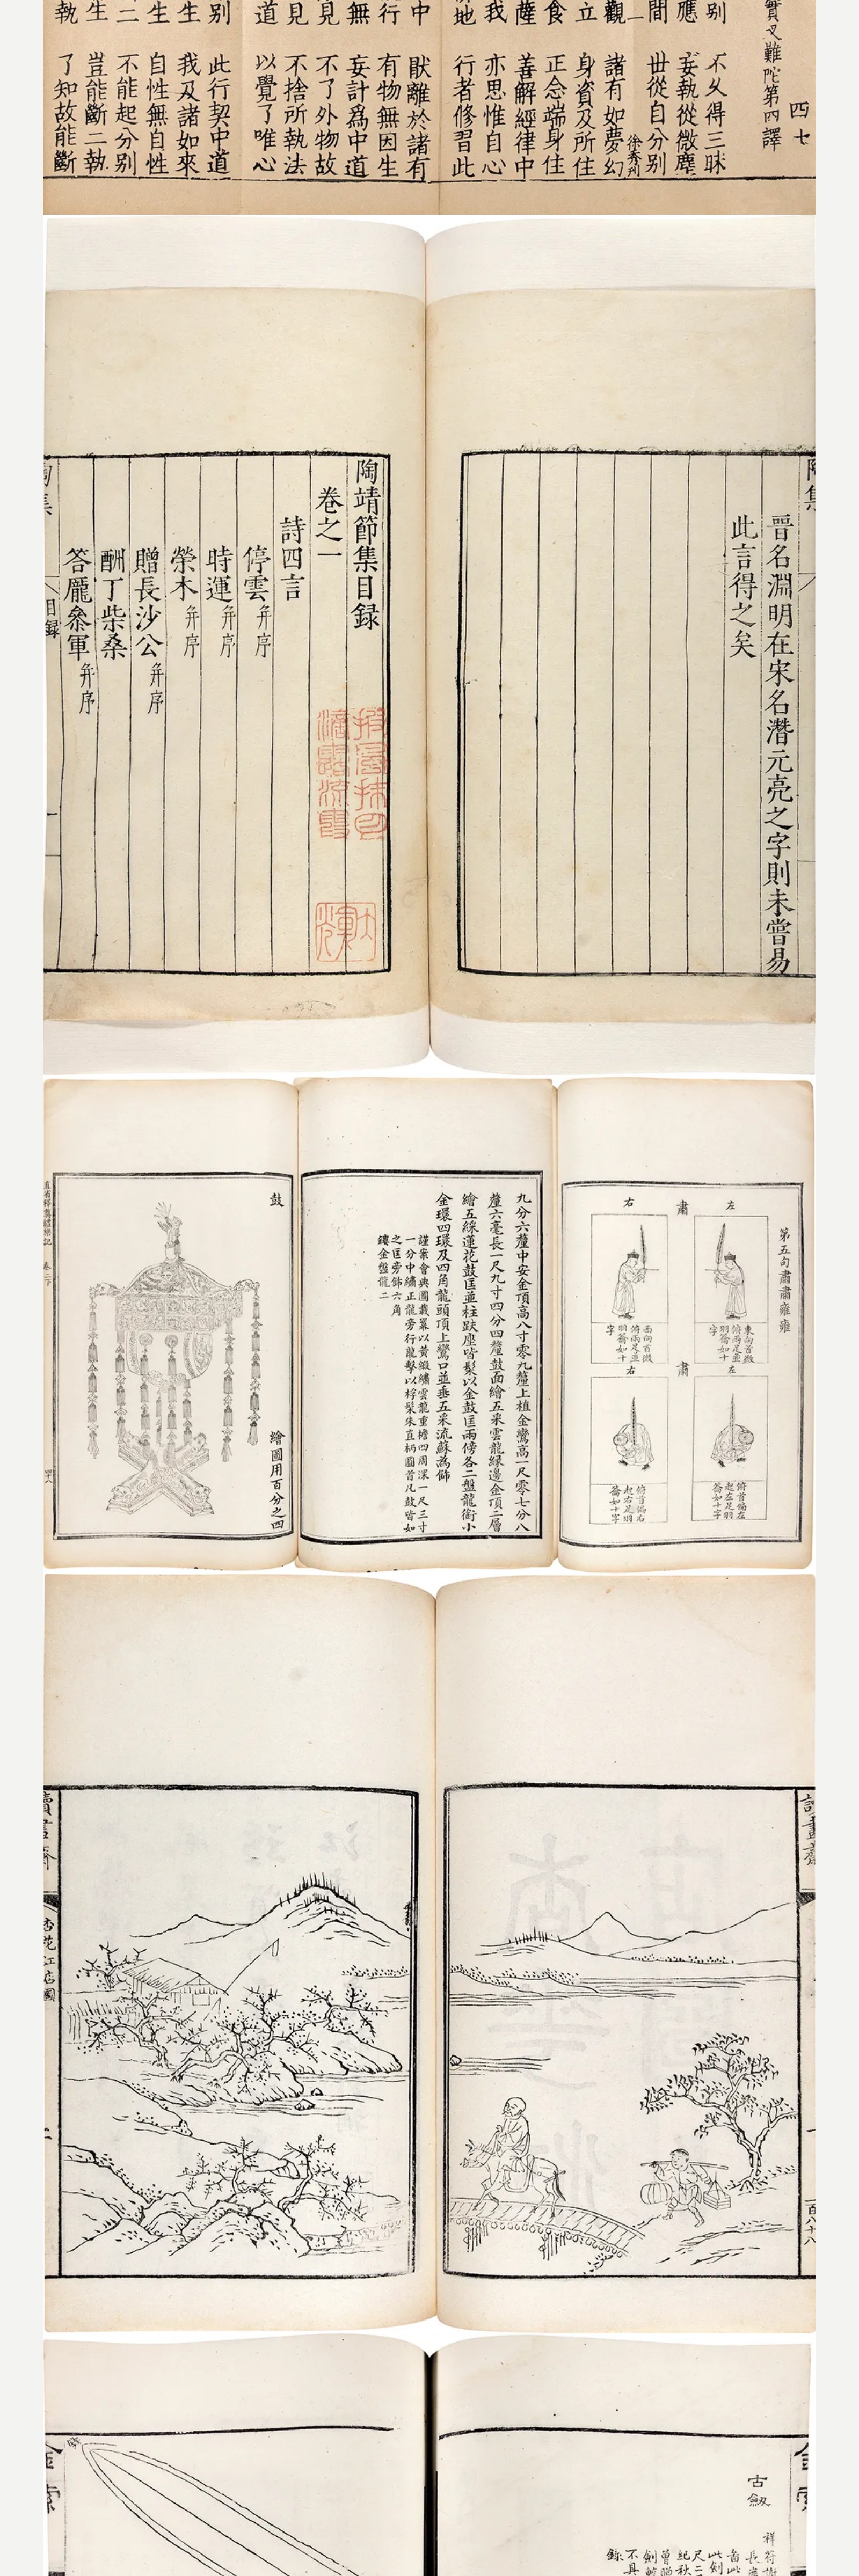 四七
實叉難陀第四譯
别 不久得三昧
應 妄執從微塵
間 世從自分別
觀 諸有如夢幻
立 身資及所住
食 正念端身住
薩 善解經律中
我 亦思惟自心
地 行者修習此
中 厭離於諸有
行 有物無因生
無 妄計爲中道
見 不了外物故
見 不捨所執法
道 以覺了唯心
别 此行契中道
生 我及諸如來
生 自性無自性
二 不能起分别
生 豈能斷二執
執 了知故能斷
陶集
晉名淵明在宋名潛元亮之字則未嘗易
此言得之矣
陶靖節集目録
卷之一
詩四言
停雲 并序
時運 并序
榮木 并序
贈長沙公 并序
酬丁柴桑
答龐叅軍 并序
陶集
目録
一
第五句肅肅雍雍
左
肅
右
東向首微
俯兩足並
羽籥如十
字
西向首微
俯兩足並
羽籥如十
字
左
肅
右
俯首偏左
起左足羽
籥如十字
俯首偏右
起右足羽
籥如十字
九分六釐中安金頂高八寸零九釐上植金鸞高一尺零七分八
釐六毫長一尺九寸四分四釐鼓面繪五采雲龍緣邊金頂二層
繪五綵蓮花鼓匡並柱趺座皆髹以金鼓匡兩傍各二盤龍銜小
金環四環及四角龍頭頂上鸞口並垂五采流蘇為飾
謹案會典圖載冪以黃緞繡雲龍重檐四周深一尺三寸
一分中繡正龍旁行龍擊以桴髹朱直柄圓首凡鼓皆如
之匡旁飾六角
鏤金盤龍二
鼓
繪圖用百分之四
直省釋奠禮樂記
卷二下
讀畫齋
一百八十八
讀畫齋
杏花江店圖
二
金索
古劔
金索